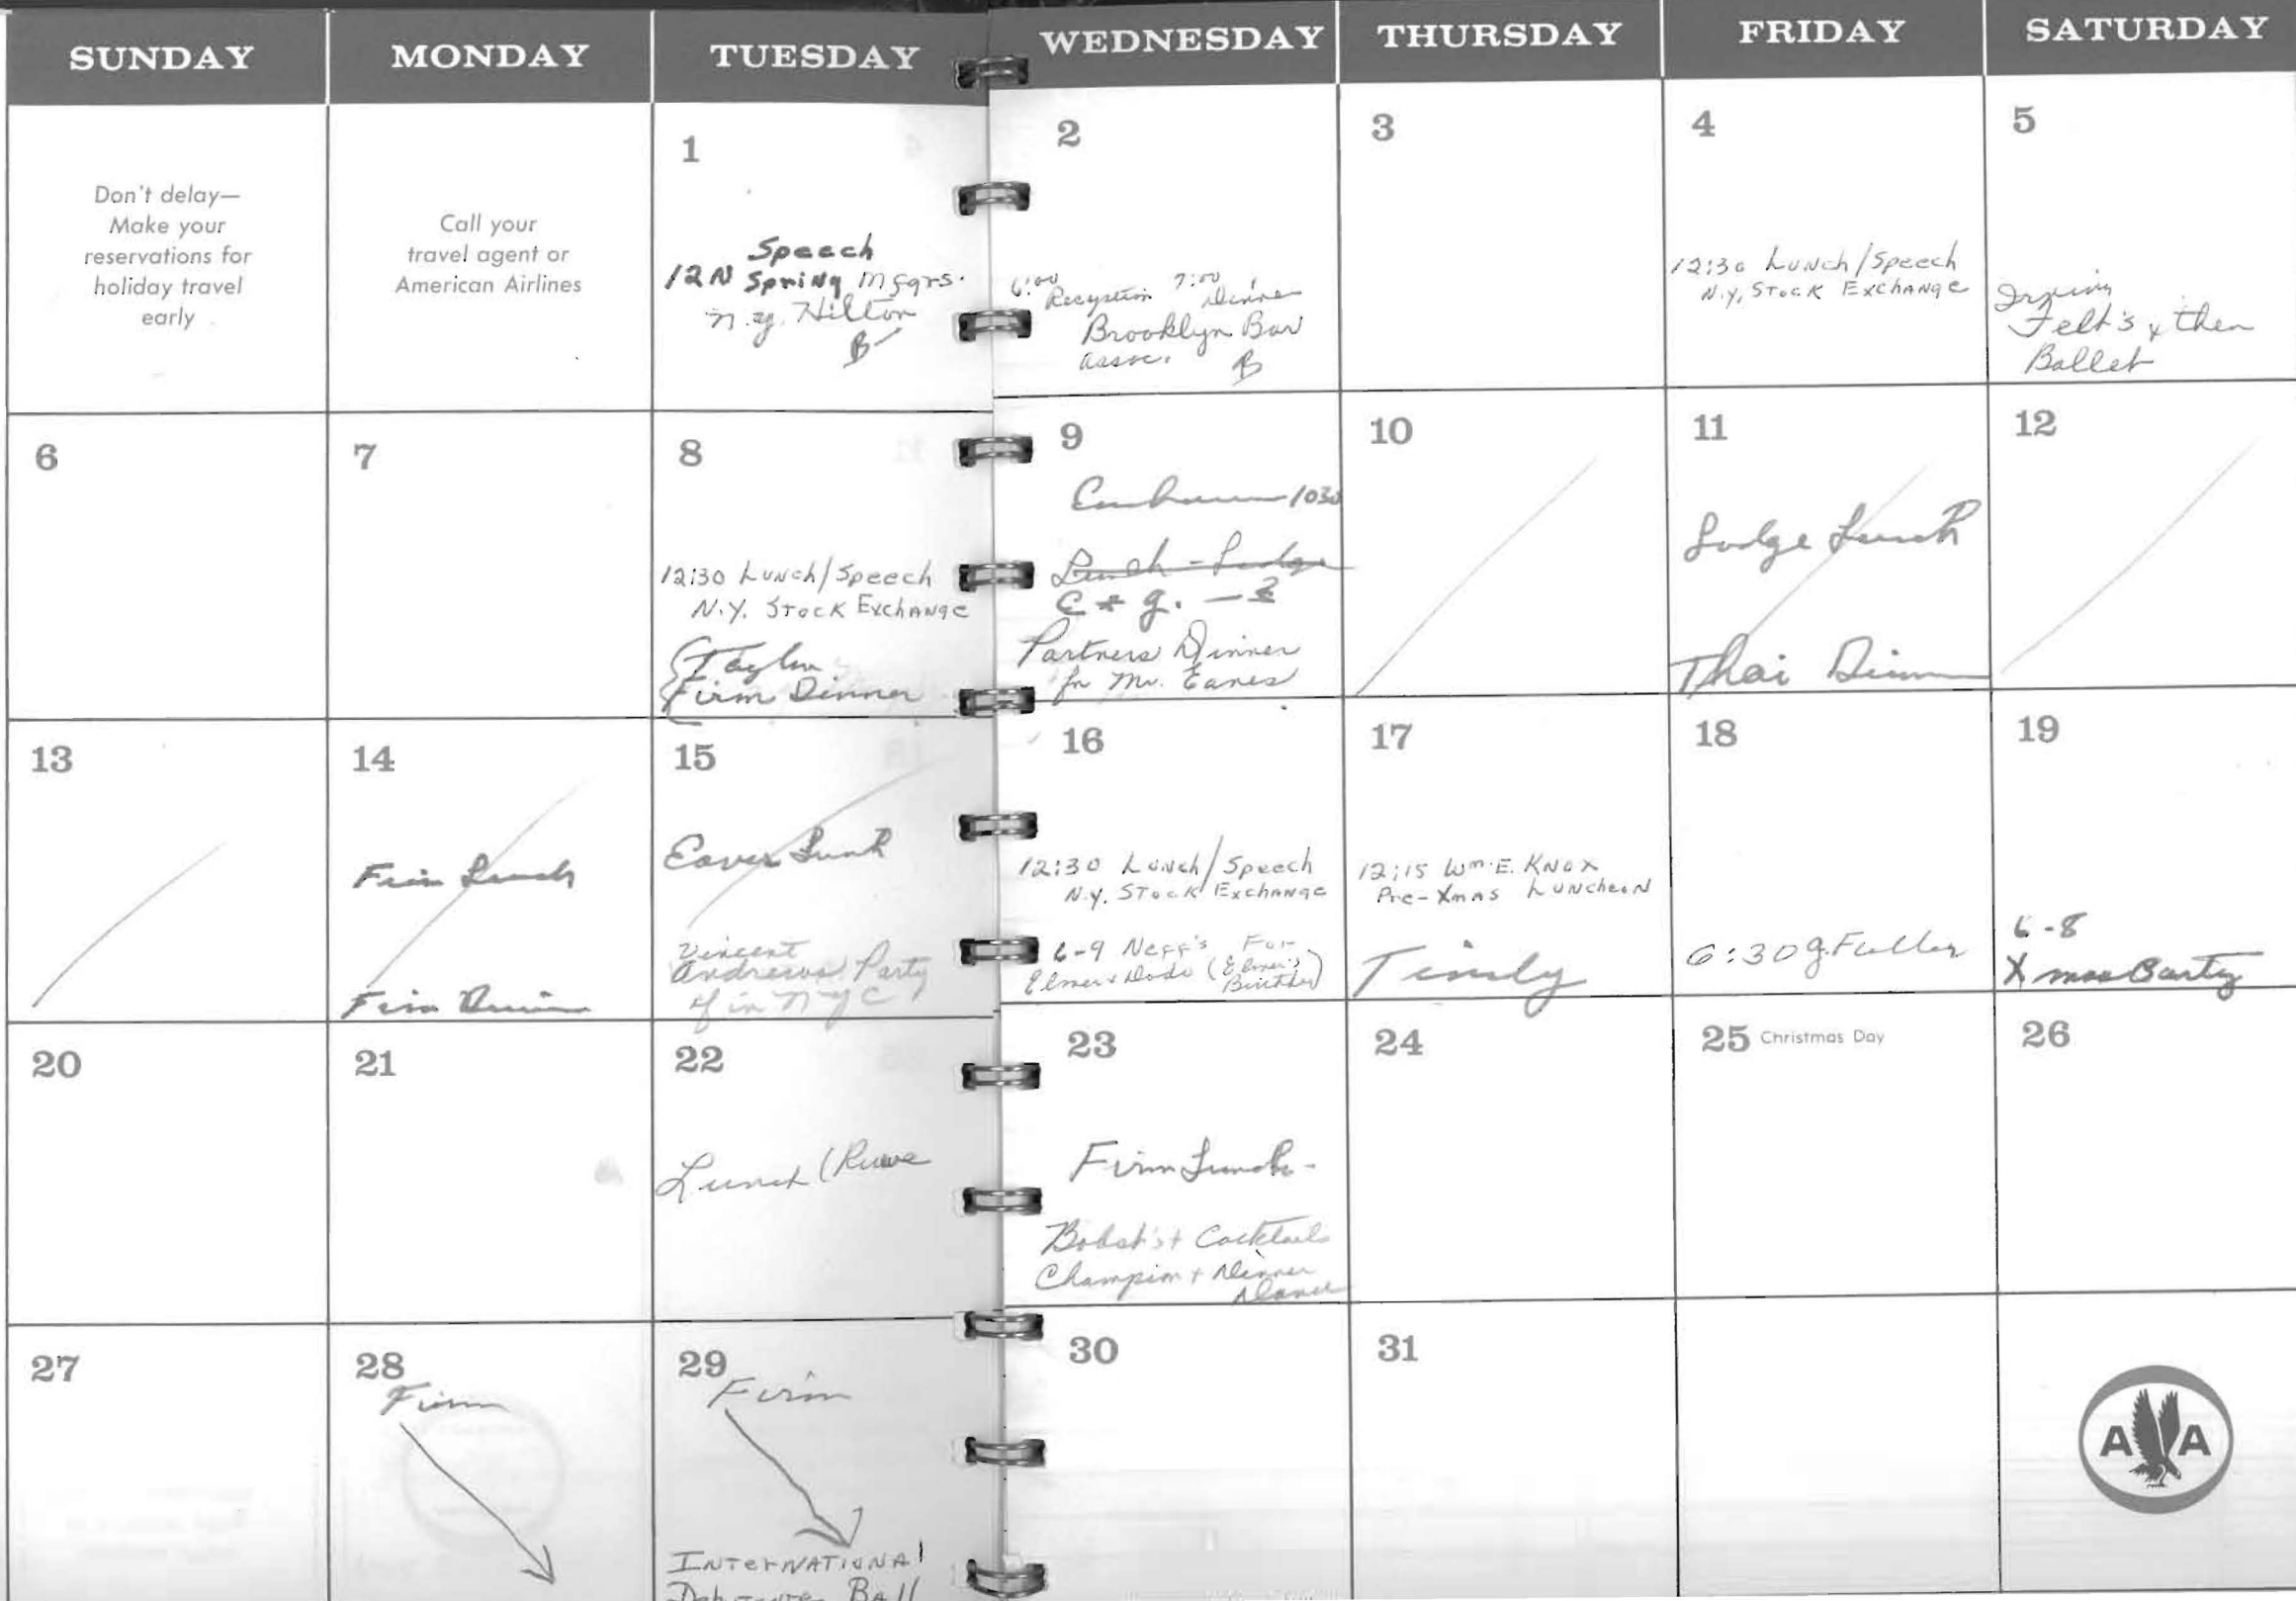 SUNDAY MONDAY TUESDAY WEDNESDAY THURSDAY FRIDAY SATURDAY
Don't delay—
Make your
reservations for
holiday travel
early
Call your
travel agent or
American Airlines
1
Speech
12N Spring Mfgrs.
N.Y. Hilton
B
2
6:00 7:00
Reception Dinner
Brooklyn Bar
Assoc.
B
3
4
12:30 Lunch/Speech
N.Y. Stock Exchange
5
Irving
Felt's & then
Ballet
6
7
8
12:30 Lunch/Speech
N.Y. Stock Exchange
Taylor
Firm Dinner
9
1030
Lunch - Lodge
C & G. - 3
Partners Dinner
for Mr.
10
11
Lodge Lunch
Thai Dinner
12
13
14
Firm Lunch
Firm Dinner
15
Lunch
Vincent
Andrews Party
if in NYC
16
12:30 Lunch/Speech
N.Y. Stock Exchange
6-9 Neff's For
Elmer & Dodo (Elmer's
Birthday)
17
12:15 Wm. E. Knox
Pre-Xmas Luncheon
18
6:30 G. Fuller
19
6-8
Xmas Party
20
21
22
Lunch (Ruwe
23
Firm Lunch -
Bobst's + Cocktails
Champion + Dinner
Dance
24
25 Christmas Day
26
27
28
Firm
29
Firm
International
Ball
30
31
A A